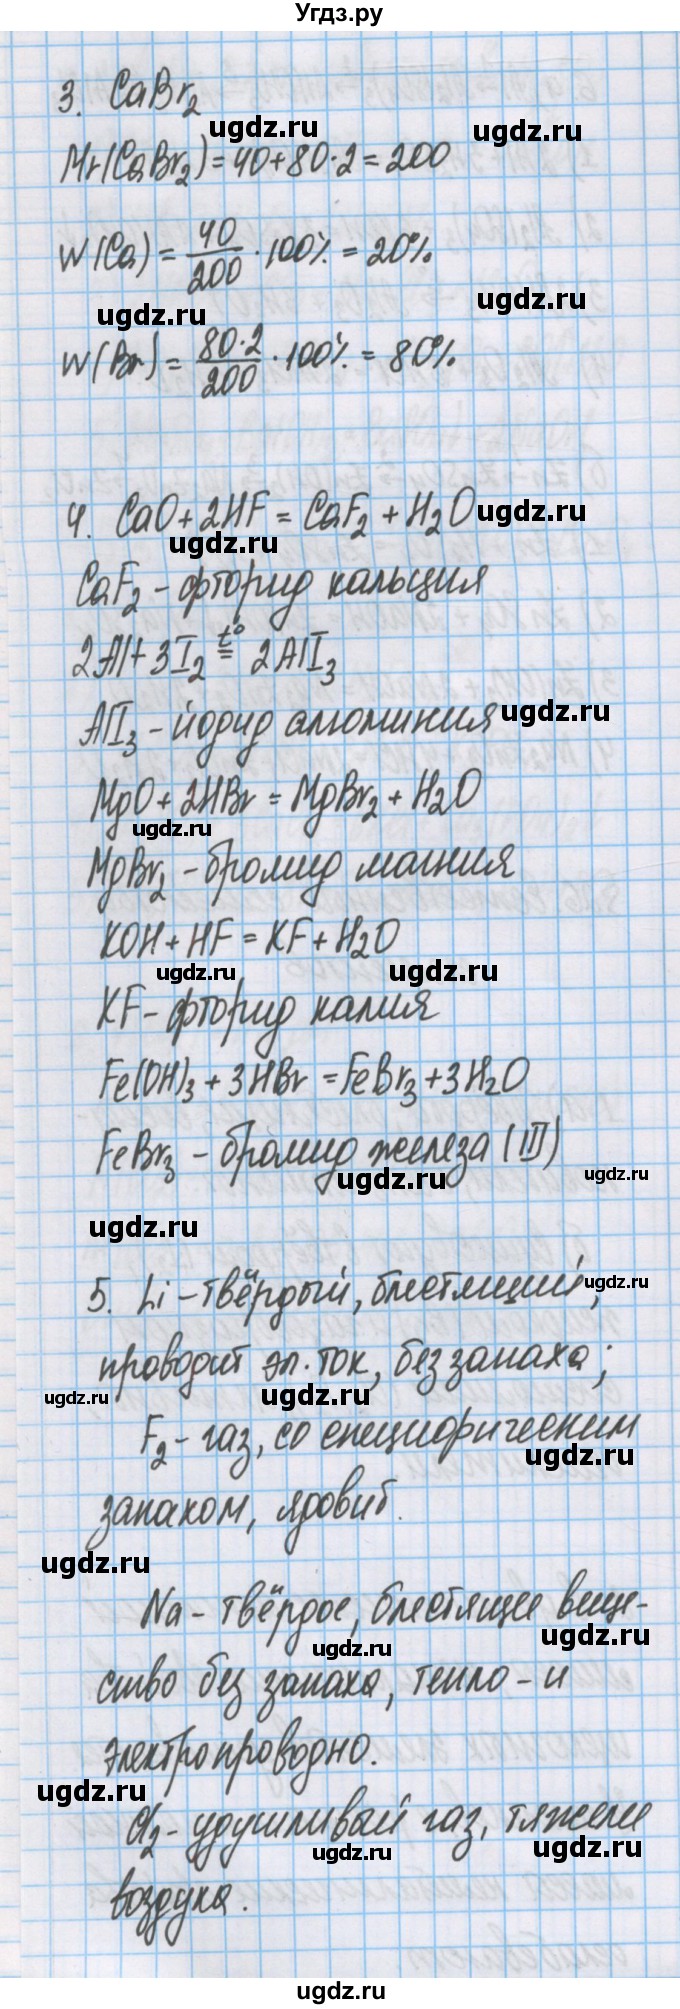 Угдз.ру
3. CaBr₂
ugdz.ru ugdz.ru
Mr(CaBr₂)=40+80·2=200
W(Ca) = 40/200 · 100% = 20%
ugdz.ru ugdz.ru
W(Br) = 80·2/200 · 100% = 80%
4. CaO+2HF = CaF₂ + H₂O ugdz.ru
ugdz.ru
CaF₂ - фторид кальция
2Al+3I₂ t°= 2AlI₃
AlI₃ - йодид алюминия ugdz.ru
MgO+2HBr = MgBr₂ + H₂O
ugdz.ru
MgBr₂ - бромид магния
KOH + HF = KF + H₂O
ugdz.ru ugdz.ru
KF - фторид калия
Fe(OH)₃ + 3HBr = FeBr₃ + 3H₂O
FeBr₃ - бромид железа (III)
ugdz.ru ugdz.ru
ugdz.ru
5. Li - твёрдый, блестящий,
ugdz.ru
проводит эл. ток, без запаха;
ugdz.ru ugdz.ru
F₂ - газ, со специфическим
ugdz.ru
запахом, ядовит.
ugdz.ru
Na - твёрдое, блестящее веще-
ugdz.ru ugdz.ru
ство без запаха, тепло - и
электропроводно.
ugdz.ru
Cl₂ - удушливый газ, тяжелее
ugdz.ru ugdz.ru
воздуха.
ugdz.ru